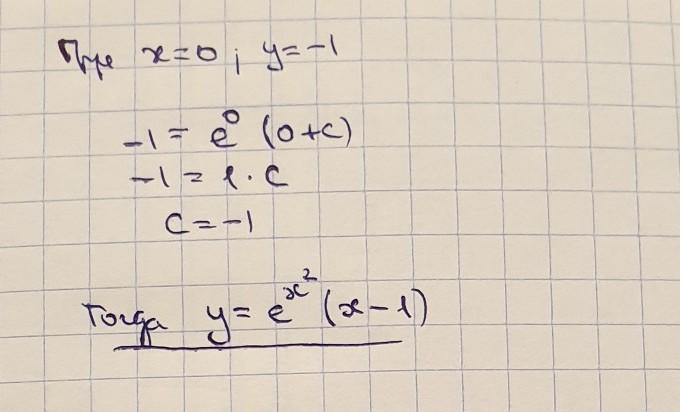 При x=0; y=-1
-1 = e⁰ (0+c)
-1 = 1 · c
c = -1
Тогда y = e^{x²} (x-1)